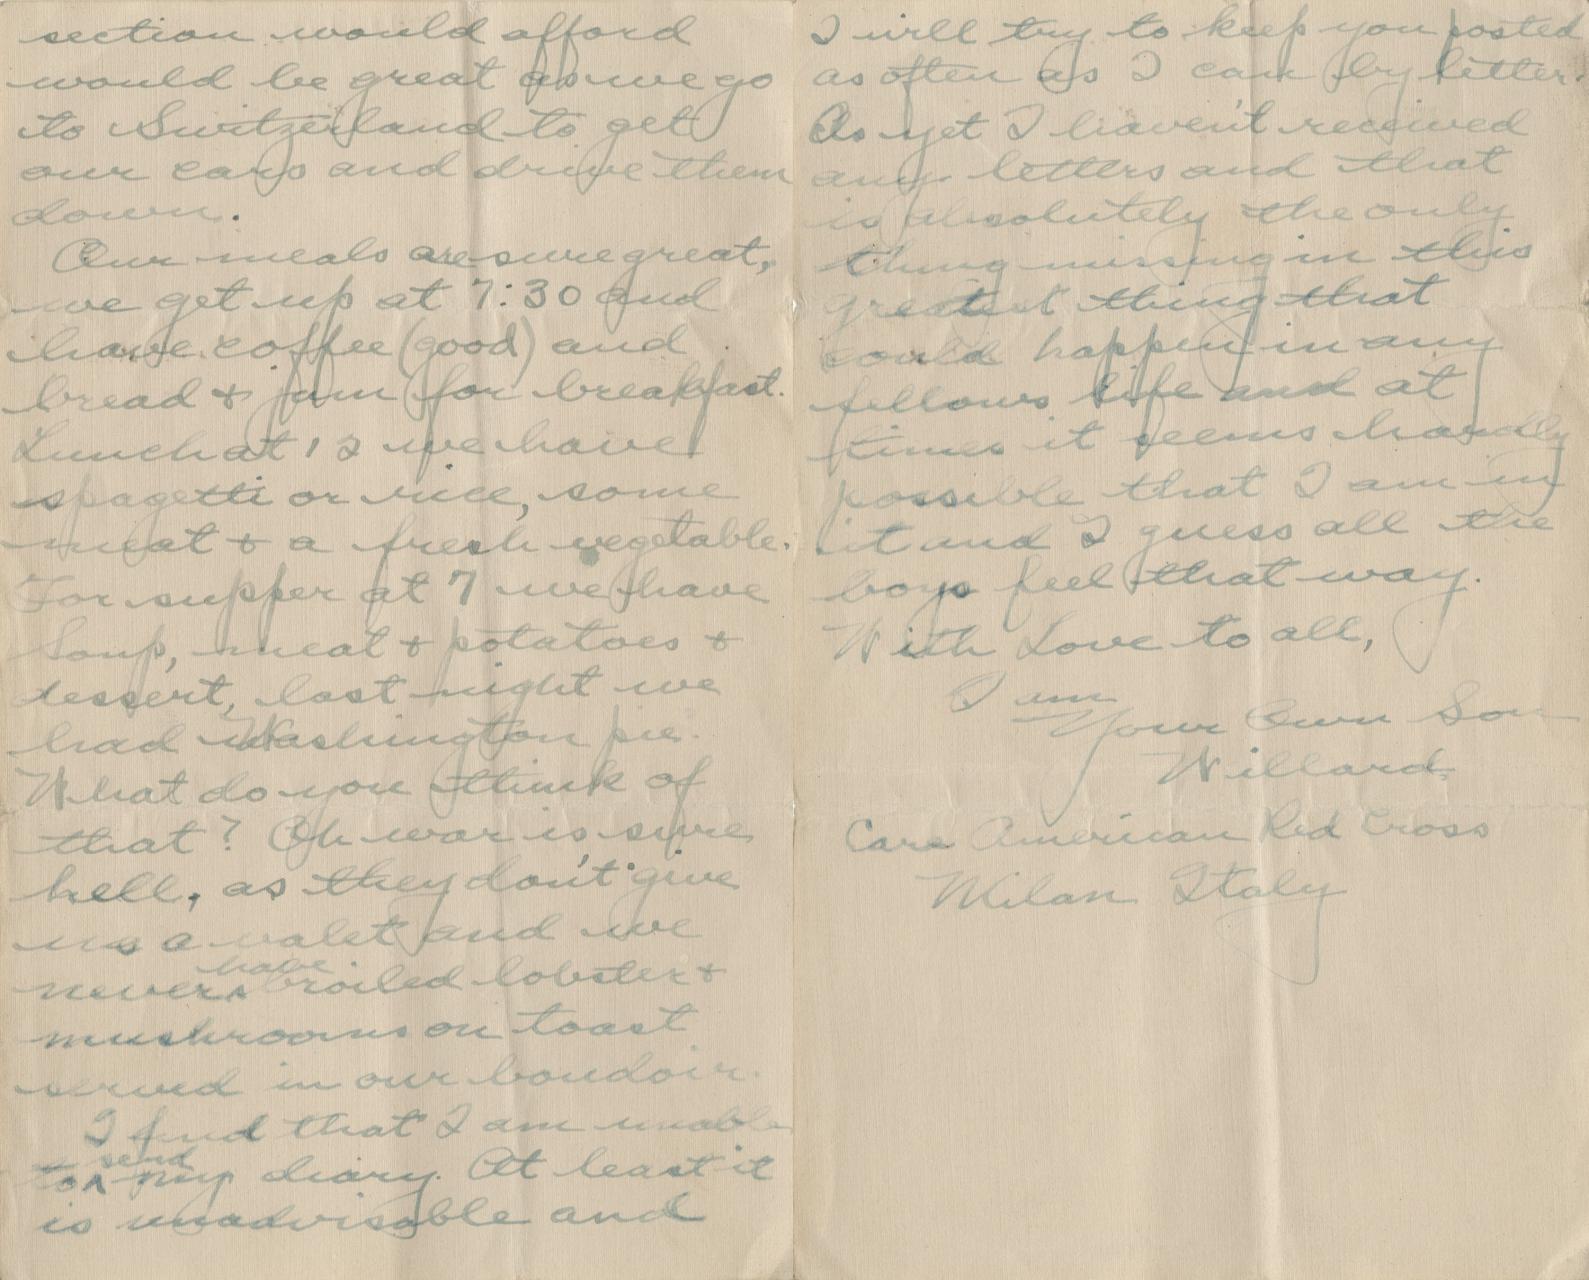 section would afford
would be great as we go
to Switzerland to get
our cars and drive them
down.
Our meals are sure great,
we get up at 7:30 and
have coffee (good) and
bread & jam for breakfast.
Lunch at 12 we have
spagetti or rice, some
meat & a fresh vegetable.
For supper at 7 we have
Soup, meat & potatoes &
dessert, last night we
had Washington pie.
What do you think of
that? Oh war is sure
hell, as they don't give
us a valet and we
never have broiled lobster &
mushrooms on toast
served in our boudoir.
I find that I am unable
to send my diary. At least it
is unadvisable and
I will try to keep you posted
as often as I can by letter.
As yet I haven't received
any letters and that
is absolutely the only
thing missing in this
greatest thing that
could happen in any
fellows life and at
times it seems hardly
possible that I am in
it and I guess all the
boys feel that way.
With Love to all,
I am
Your Own Son
Willard
Care American Red Cross
Milan Italy